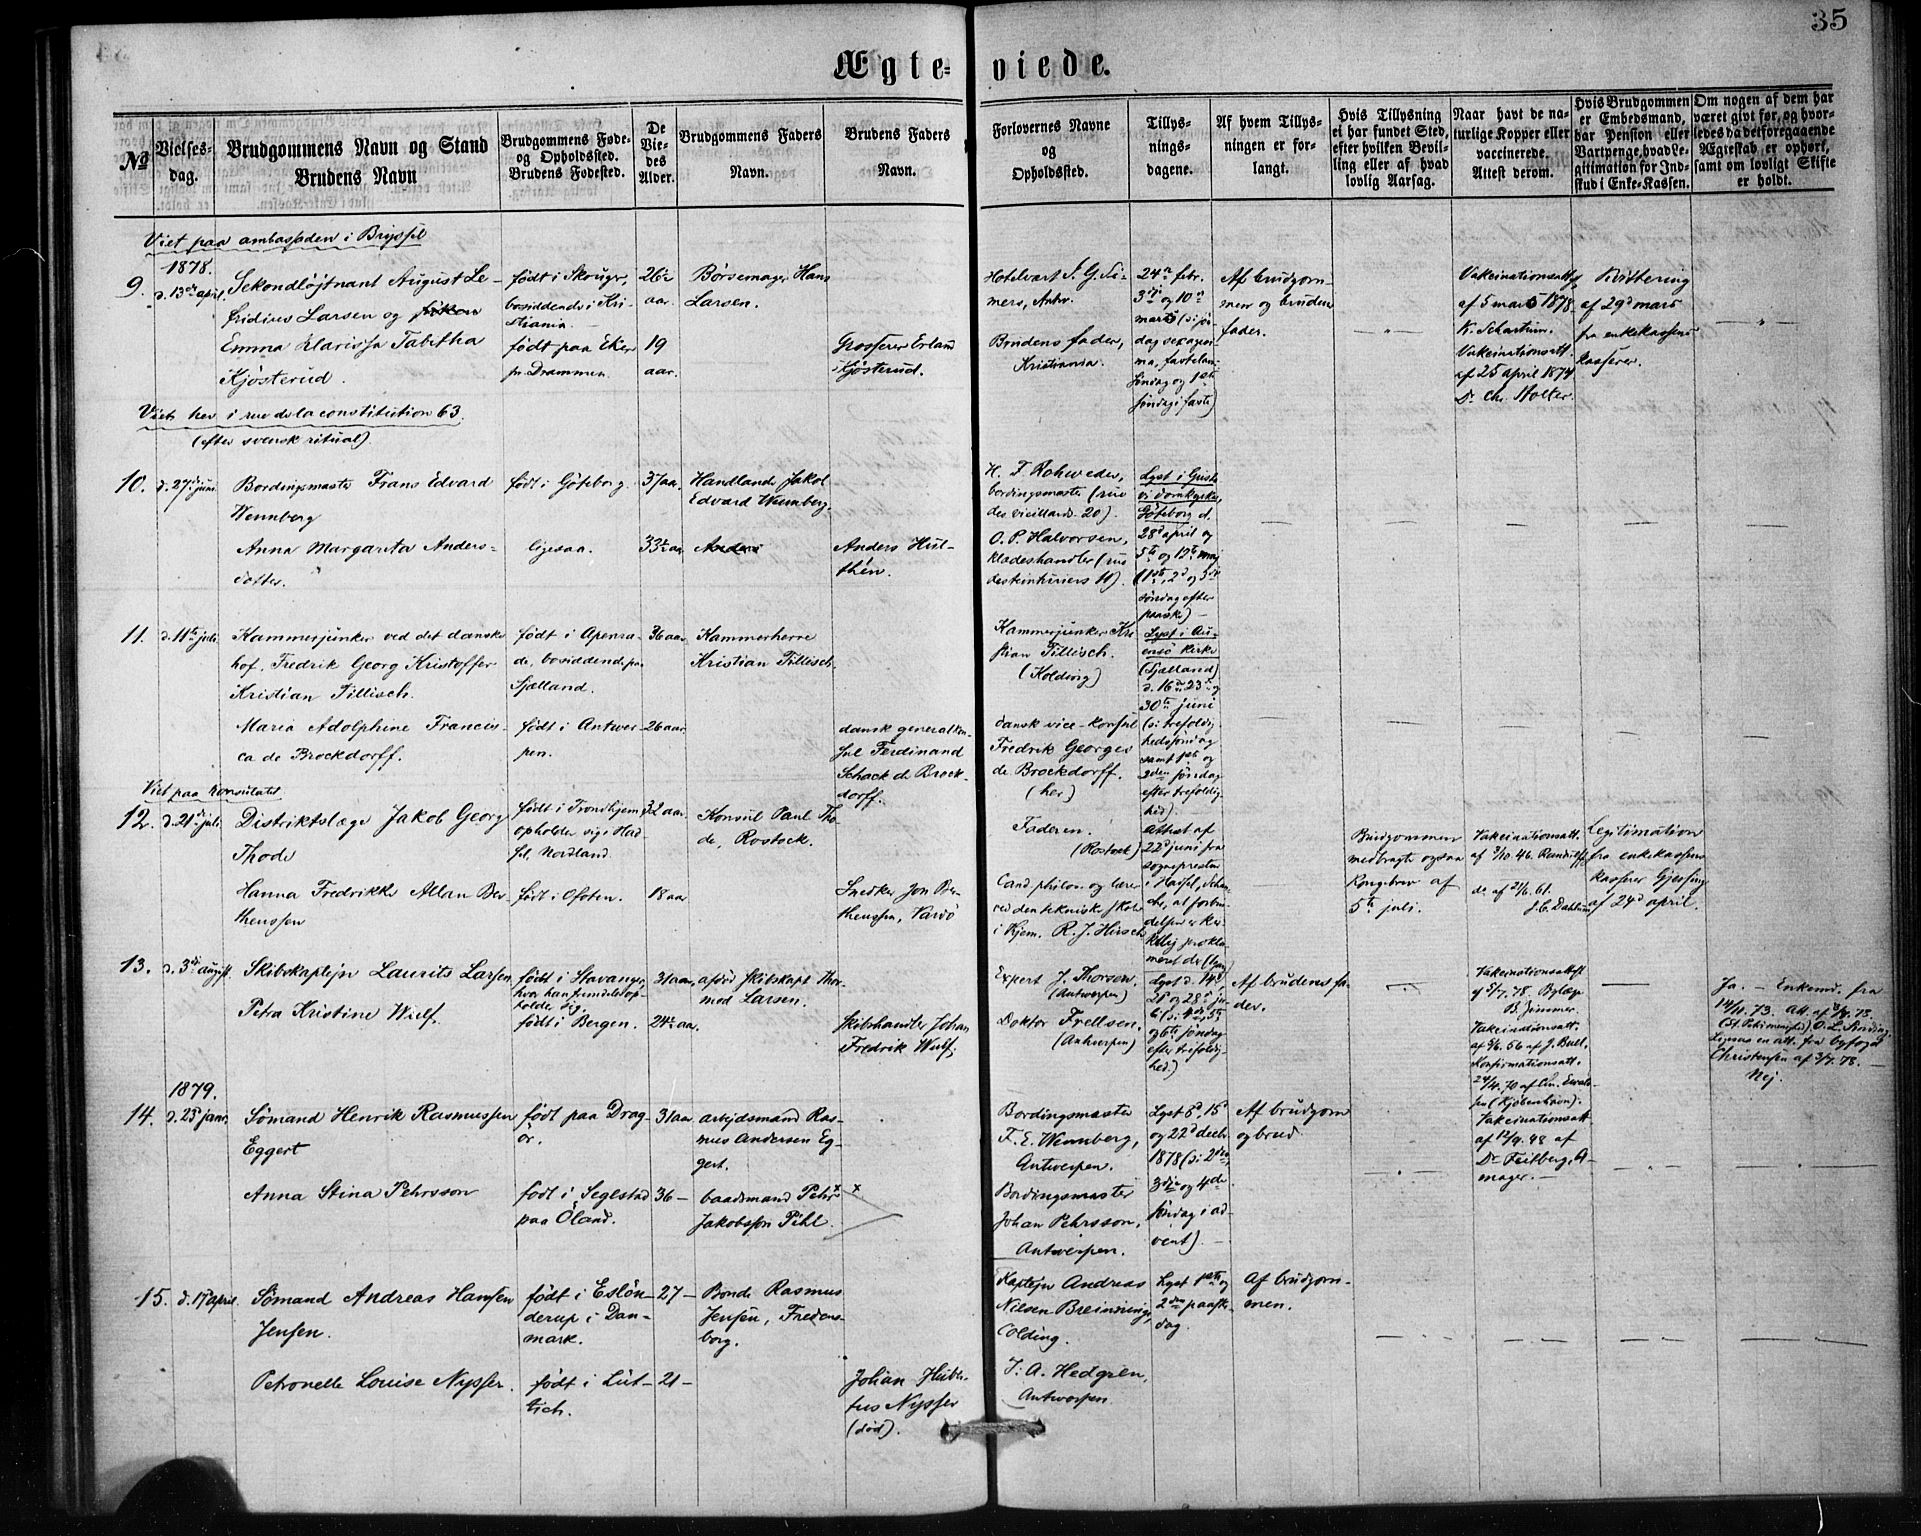 35
Ægte-
viede.
№
Vielses-
dag.
Brudgommens Navn og Stand
Brudens Navn
Brudgommens Føde-
og Opholdssted.
Brudens Fødested.
De
Vie-
des
Alder.
Brudgommens Faders
Navn.
Brudens Faders
Navn.
Forlovernes Navne
og
Opholdssted.
Tillys-
nings-
dagene.
Af hvem Tillys-
ningen er for-
langt.
Hvis Tillysning
ei har fundet Sted,
efter hvilken Bevil-
ling eller af hvad
lovlig Aarsag.
Naar havt de na-
turlige Kopper eller
vaccinerede.
Attest derom.
Hvis Brudgommen
er Embedsmand,
har Pension eller
Vartpenge, hvad Le-
gitimation for Ind-
skud i Enke-Kassen.
Om nogen af dem har
været givt før, og hvor-
ledes da det foregaaende
Ægteskab er ophørt,
samt om lovligt Skifte
er holdt.
Viet paa ambassaden i Bryssel
1878.
9.
d. 13de april.
Sekondløjtnant August Le-
fridius Larsen og frøken
Emma Klarissa Tabitha
Kjøsterud.
født i Skouger,
bosiddende i Kri-
stiania.
født paa Eker
pr. Drammen.
26 1/2
aar.
19
aar.
Børsemager Hans
Larsen.
Grosserer Erland
Kjøsterud.
Hotelvært S. G. Si-
mers, Antw.
Brudens fader,
Kristiania.
24de febr.
3die og 10de
marts (s: søn-
dag sexagesi-
ma, fastelavn
søndag og 1ste
søndag i faste)
Af brudgom-
men og brudens
fader.
Vakcinationsatt.
af 5 marts 1878.
K. Schartum.
Vakcinationsatt.
af 25 april 1874
Dr. Chr. Holter.
Kvittering
af 29d mars
fra enkekassens
kasserer.
Viet her i rue de la constitution 63.
(efter svensk ritual)
10.
d. 27de juni.
Bordingsmaster Frans Edvard
Wennberg
Anna Margareta Anders-
dotter.
født i Göteborg.
ligesaa.
37 aar.
33 1/2 aar
Handlande Jakob
Edvard Wennberg.
Anders
Anders Hul-
thén.
H. F. Rohweder,
bordingsmaster (rue
des vieillards 20).
O. P. Halvorsen,
klædeshandler (rue
des teinturiers 11).
Lyst i Gusta-
vi domkyrka,
Göteborg d.
28d april og
5te og 12te maj
(1ste, 2d og 3die
søndag efter
paaske)
11.
d. 11te juli.
Kammerjunker ved det danske
hof, Fredrik Georg Kristoffer
Kristian Tillisch.
Maria Adolphine Francis-
ca de Brockdorff.
født i Apenra-
de, bosiddende paa
Sjælland.
født i Antwer-
pen.
36 aar
26 aar
Kammerherre
Kristian Tillisch.
dansk generalkon-
sul Ferdinand
Schack de Brock-
dorff.
Kammerjunker Kri-
stian Tillisch.
(Kolding)
dansk vice-konsul
Fredrik Georges
de Brockdorff.
(her)
Lyst i Au-
ensø kirke
(Sjælland)
d. 16de 23de og
30te juni
(s: trefoldig-
hedssøndag
samt 1ste og
2den søndag
efter trefoldig-
hed).
Viet paa konsulatet
12.
d. 21de juli
Distriktslæge Jakob Georg
Thode
Hanna Fredrikke Allan Ber-
thenssen
født i Trondhjem,
opholder sig i Had-
sel, Nordland.
født i Ofoten.
32 aar
18 aar
Konsul Paul Tho-
de, Rostock.
Snedker Jon Ber-
thenssen, Vardö
Faderen.
(Rostock)
Cand. philos. og lærer
ved den tekniske skole
i Thjem. R. J. Hirsch
Attest af
22d juni fra
sognepresten
i Hassel,
at forbin-
delsen er kir-
kelig prokla-
meret der
Brudgommen
medbragte ogsaa
kongebrev af
5te juli.
Vakcinationsatt.
af 3/10 46.
do af 21/6. 61.
J. C. Dahl
Legitimation
fra enkekassens
kasserer Gjessing
af 24d april.
13.
d. 3die august.
Skibskaptejn Laurits Larsen
Petra Kristine Wulf.
født i Stavanger,
hvor han fremdeles op-
holder sig.
født i Bergen.
31 aar,
24 1/2 aar.
afdød skibskapt. Thor-
mod Larsen.
Skibshandler Johan
Fredrik Wulf.
Expert J. Thorsen,
(Antwerpen)
Doktor Frellsen,
(Antwerpen)
Lyst d. 14de,
21de og 28de ju-
li (s: 4de, 5te
og 6te søndag
efter trefoldig-
hed.)
Af brudens fa-
der.
Vakcinationsatt.
af 5/7. 78. Bylæge
B. Zimmer.
Vakcinationsatt.
af 9/6. 56 af J. Bull.
Konfirmationsatt.
24/4. 70 af Chr. Ewald-
sen (Kjøbenhavn).
Ja. — Enkemd. fra
14/11. 73. Att. af
(St. Petri menighed) O. L. Sinding.
Ligesaa en att. fra byfoged
Christensen af 3/7. 78. —
Nej.
1879.
14.
d. 23de janr.
Sømand Henrik Rasmussen
Eggert
Anna Stina Pehrsson
født paa Drag-
ör.
født i Segestad
paa Öland.
31 aar
36 —
arbejdsmand Ras-
mus Andersen Eg-
gert.
baadsmand Pehr
Jakobsson Pihl.
Bordingsmaster
F. E. Wennberg,
Antwerpen.
Bordingsmaster
Johan Pehrsson,
Antwerpen.
Lyst 8d, 15d
og 22d decbr.
1878 (s: 2den,
3die og 4de
søndag i ad-
vent).
Af brudgom
og brud.
Vakcinationsatt.
af 12/9. 48 af
Dr. Feilberg, A-
mager.
15.
d. 17 april.
Sømand Andreas Hansen
Jensen.
Petronelle Louise Nysser.
født i Eslön-
derup i Dan-
mark.
født i Lüt-
tich.
27 —
21 —
Bonde Rasmus
Jensen, Fredens-
borg.
Johan Huber-
tus Nysser
(død).
Kaptejn Andreas
Nilsen Breinning,
Colding.
J. A. Hedgren,
Antwerpen.
Lyst 1ste og
2den paaske-
dag.
Af brudgom-
men.